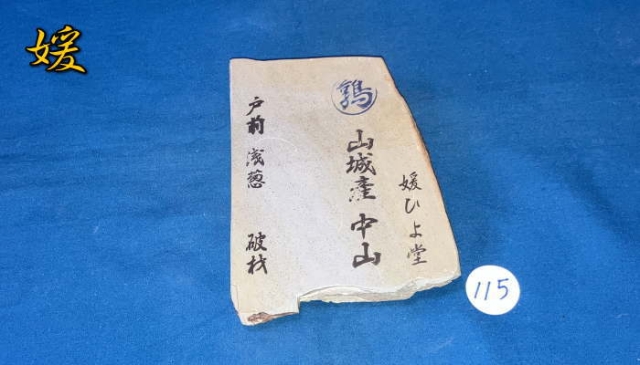 媛
鶉
媛ひよ堂
山城産 中山
戸前 浅葱 破材
115